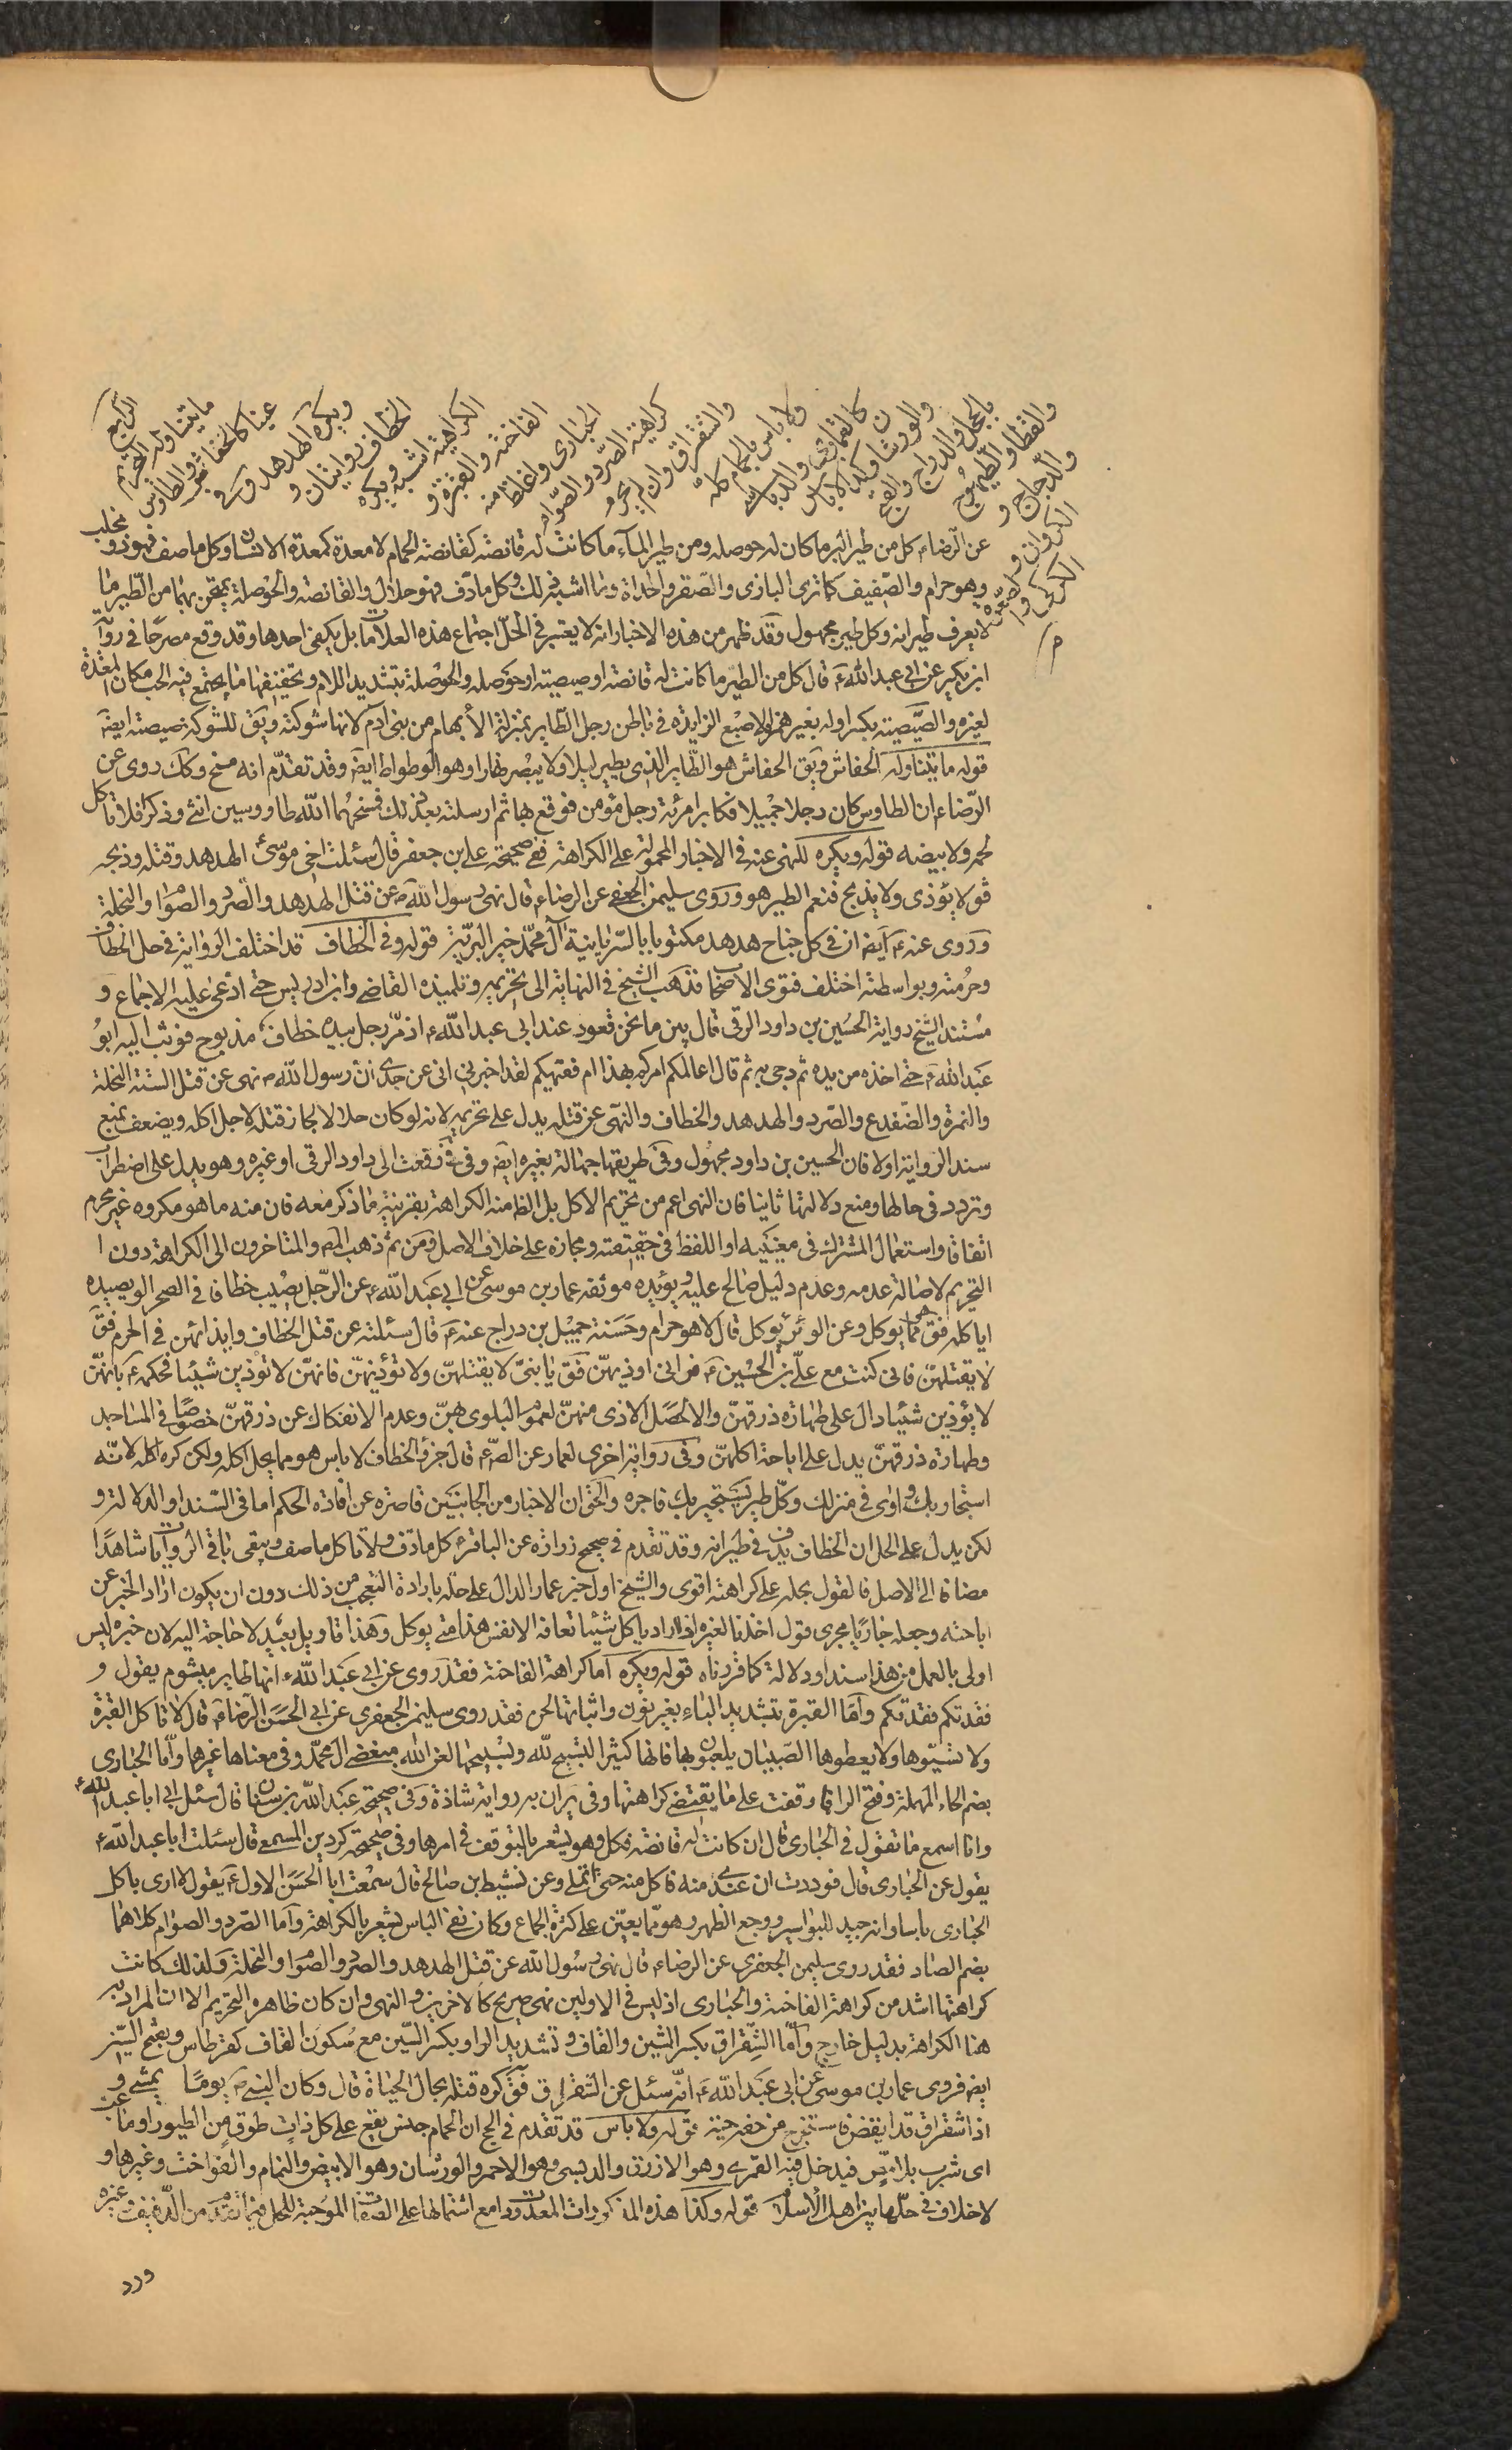 الرابع
ما يتناوله التحريم
عينا كالخفاش والطاوس
ويكره الهدهد وفي
الخطاف روايتان و
الكراهية اشبه ويكره
الفاخته والقبرة و
الحبارى واغلظ منه
كراهية الصرد والصوام
والشقراق وان لم يحرم
ولا باس بالحمام كله
كالقمارى والدباسى
والورشان وكذا لا باس
بالحجل والدراج والقبج
والقطا والطيهوج
والدجاج و
الكروان و
الكركى و
عن الرضاء كل من طير البر ما كان له حوصله ومن طير الماء ما كانت له قانصة كقانصة الحمام لا معدة كمعدة الانسان وكل ما صف فهو ذو مخلب
وهو حرام والصفيف كما ترى البازى والصقر والحداة وما اشبه ذلك وكل ما دف فهو حلال والقانصة والحوصلة يمتحن بهما من الطير ما
لا يعرف طيرانه وكل طير مجهول وقد ظهر من هذه الاخبار انه لا يعتبر في الحل اجتماع هذه العلامات بل يكفى احدها وقد وقع مصرحا في رواية
ابن بكير عن ابى عبد الله ع قال كل من الطير ما كانت له قانصة او صيصية او حوصله والحوصلة بتشديد اللام وتخفيفها ما يجتمع فيه الحب مكان المعدة
لغيره والصيصية بكسر اوله بغير همز الاصبع الزايدة في باطن رجل الطاير بمنزلة الابهام من بنى آدم لانها شوكته ويق للشوكة صيصية ايضا
قوله ما يتناوله الخفاش ويق الخفاش هو الطاير الذى يطير ليلا ولا يبصر نهارا وهو الوطواط ايضا وقد تقدم انه مسخ وكك روى عن
الرضاء ان الطاوس كان رجلا جميلا فكابر امرئة رجل مؤمن فوقع بها ثم راسلته بعد ذلك فمسخهما الله طاووسين انثى وذكرا فلا تاكل
لحمه ولا بيضه قوله ويكره للنهى عنه في الاخبار المحمولة على الكراهة ففى صحيحة على بن جعفر قال سئلت اخى موسى الهدهد وقتله وذبحه
فق لا يؤذى ولا يذبح فنعم الطير هو وروى سليمن الجعفى عن الرضاء قال نهى رسول الله ص عن قتل الهدهد والصرد والصوام والنحلة
وروى عنه ع ايضا ان في كل جناح هدهد مكتوبا بالسريانية آل محمد خير البرية قوله وفي الخطاف قد اختلف الرواية في حل الخطاف
وحرمته وبواسطته اختلف فتوى الاصحاب فذهب الشيخ في النهاية الى تحريمه وتلميذه القاضى وابن ادريس حتى ادعى عليه الاجماع و
مستند الشيخ رواية الحسين بن داود الرقى قال بين ما نحن قعود عند ابى عبد الله ع اذ مر رجل بيده خطاف مذبوح فوثب اليه ابو
عبد الله ع حتى اخذه من يده ثم دحى به ثم قال اعالمكم امركم بهذا ام فقيهكم لقد اخبرنى ابى عن جدى ان رسول الله ص نهى عن قتل الستة النحلة
والنمرة والضفدع والصرد والهدهد والخطاف والنهى عن قتله يدل على تحريمه لانه لو كان حلالا لجاز قتله لاجل اكله ويضعف بمنع
سند الرواية اولا فان الحسين بن داود مجهول وفى طريقها جهالة بغيره ايضا وفى رفعت الى داود الرقى او غيره وهو يدل على اضطراب
وتردد في حالها ومنع دلالتها ثانيا فان النهى اعم من تحريم الاكل بل الظ منه الكراهة بقرينة ما ذكر معه فان منه ما هو مكروه غير محرم
اتفاقا واستعمال المشترك في معنييه او اللفظ في حقيقته ومجازه على خلاف الاصل ومن ثم ذهب المص والمتاخرون الى الكراهة دون ا
التحريم لاصالة عدمه وعدم دليل صالح عليه ويؤيده موثقه عمار بن موسى عن ابى عبد الله ع عن الرجل يصيب خطافا في الصحرا او يصيده
اياكله فق هو مما يوكل وعن الوبر يوكل قال لا هو حرام وحسنة جميل بن دراج عنه ع قال سئلته عن قتل الخطاف وايذائهن في الحرم فق
لا يقتلهن فانى كنت مع على بن الحسين ع فرانى اوذيهن فق يا بنى لا يقتلهن ولا تؤذيهن فانهن لا تؤذين شيئا فحكمه ع بانهن
لا يؤذين شيئا دال على طهارة ذرقهن والا لحصل الاذى منهن لعموم البلوى بهن وعدم الانفكاك عن ذرقهن خصوصا في المساجد
وطهارة ذرقهن يدل على اباحة اكلهن وفى رواية اخرى لعمار عن الص ع قال خرؤ الخطاف لا باس هو مما يحل اكله ولكن كره اكله لانه
استجار بك واوى في منزلك وكل طير يستجير بك فاجره والحق ان الاخبار من الجانبين قاصرة عن افادة الحكم اما في السند او الدلالة و
لكن يدل على الحل ان الخطاف يدف في طيرانه وقد تقدم في صحيح زرارة عن الباقر ع كل ما دف ولا تاكل ما صف ويبقى باقى الروايات شاهدا
مضافا الى الاصل فالقول بحله على كراهته اقوى والشيخ اول خبر عمار الدال على حله بارادة التعجب من ذلك دون ان يكون اراد الخبر عن
اباحته وجعله جاريا مجرى قول احدنا لغيره اذا راه ياكل شيئا تعافه الانفس هذا متى يوكل وهذا تاويل بعيد لا حاجة اليه لان خبره ليس
اولى بالعمل من هذا سندا ودلالة كما قررناه قوله ويكره اما كراهة الفاخته فقد روى عن ابى عبد الله ع انها طاير ميشوم يقول و
فقدتكم فقدتكم واما القبرة بتشديد الباء بغير نون واثباتها لحن فقد روى سليمن الجعفرى عن ابى الحسن الرضاء قال لا تاكل القبرة
ولا تسبوها ولا يعطوها الصبيان يلعبون بها فانها كثيرا التسبيح لله وتسبيحها لعن الله مبغضى آل محمد وفى معناها غيرها واما الحبارى
بضم الحاء المهملة وفتح الرا فما وقفت على ما يقتضى كراهتها وفى ير ان به رواية شاذة وفى صحيحة عبد الله بن سنان قال سئل ابى ابا عبد الله ع
وانا اسمع ما تقول في الحبارى قال ان كانت له قانصة فكل وهو يشعر بالتوقف في امرها وفى صحيحة كردين المسمعى قال سئلت ابا عبد الله ع
يقول عن الحبارى قال فوددت ان عندى منه فاكل منه حتى اتملى وعن نشيط بن صالح قال سمعت ابا الحسن الاول ع يقول لا ارى باكل
الحبارى باسا وانه جيد للبواسير ووجع الظهر وهو مما يعين على كثرة الجماع وكان نفى الباس يشعر بالكراهة واما الصرد والصوام كلاهما
بضم الصاد فقد روى سليمن الجعفرى عن الرضاء قال نهى رسول الله عن قتل الهدهد والصرد والصوام والنحلة ولذلك كانت
كراهتها اشد من كراهة الفاخته والحبارى اذ ليس في الاولين نهى صريح كالاخرين والنهى وان كان ظاهره التحريم الا ان المراد به
هنا الكراهة بدليل خارج واما الشقراق بكسر الشين والقاف وتشديد الراء وبكسر الشين مع سكون القاف كقرطاس وبفتح الشين
ايضا فروى عمار بن موسى عن ابى عبد الله ع انه سئل عن الشقراق فق كره قتله بحال الحياة قال وكان النبى ص يوما يمشى و
اذا شقراق قد انقض فاستخرج من خفه حية قوله ولا باس قد تقدم في الحج ان الحمام جنس يقع على كل ذات طوق من الطيور او ما عب
اى شرب بلا مص فيدخل فيه القمرى وهو الازرق والدبسى وهو الاحمر والورشان وهو الابيض والنمام والفواخت وغيرها و
لا خلاف في حلها بين اهل الاسلام قوله وكذا هذه المذكورات المعدودة مع اشتمالها على الصفات الموجبة للحل فيما تقدم من الدفيف وغيره
ورد